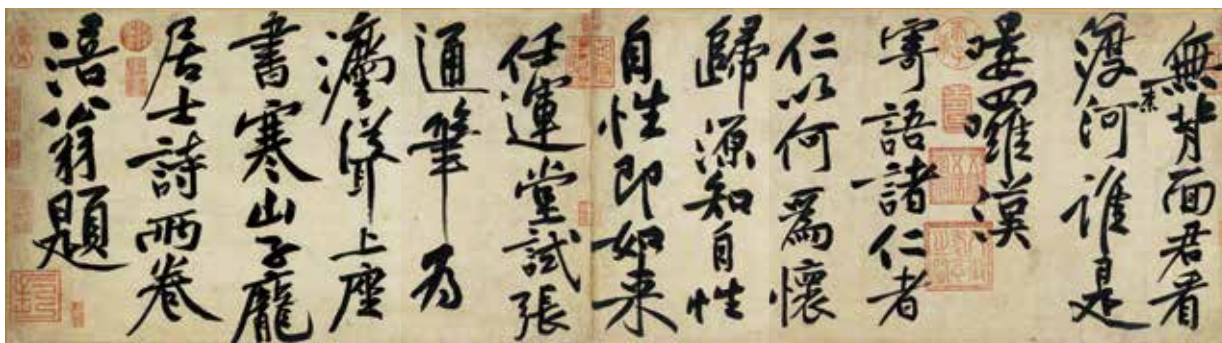 無背面君看
渡柰河誰是
嘍囉漢
寄語諸仁者
仁以何爲懷
歸源知自性
自性即如来
任運堂試張
通筆为
灋聳上座
書寒山子龐
居士詩兩卷
涪翁題